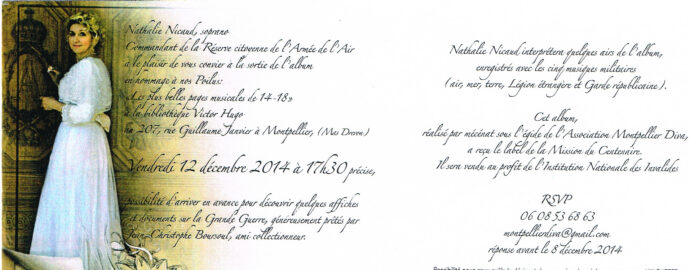 Nathalie Nicaud, soprano
Commandant de la Réserve citoyenne de l'Armée de l'Air
a le plaisir de vous convier à la sortie de l'album
en hommage à nos Poilus:
«Les plus belles pages musicales de 14-18»
à la bibliothèque Victor Hugo
207, rue Guillaume Janvier à Montpellier, (Mas Drevon)
Vendredi 12 décembre 2014 à 17h30 précise,
possibilité d'arriver en avance pour découvrir quelques affiches
et documents sur la Grande Guerre, généreusement prêtés par
Jean-Christophe Boursoul, ami collectionneur.
Nathalie Nicaud interprétera quelques airs de l'album,
enregistrés avec les cinq musiques militaires
(air, mer, terre, Légion étrangère et Garde républicaine).
Cet album,
réalisé par mécénat sous l'égide de l'Association Montpellier Diva,
a reçu le label de la Mission du Centenaire.
Il sera vendu au profit de l'Institution Nationale des Invalides
RSVP
06 08 53 68 63
montpellierdiva@gmail.com
réponse avant le 8 décembre 2014